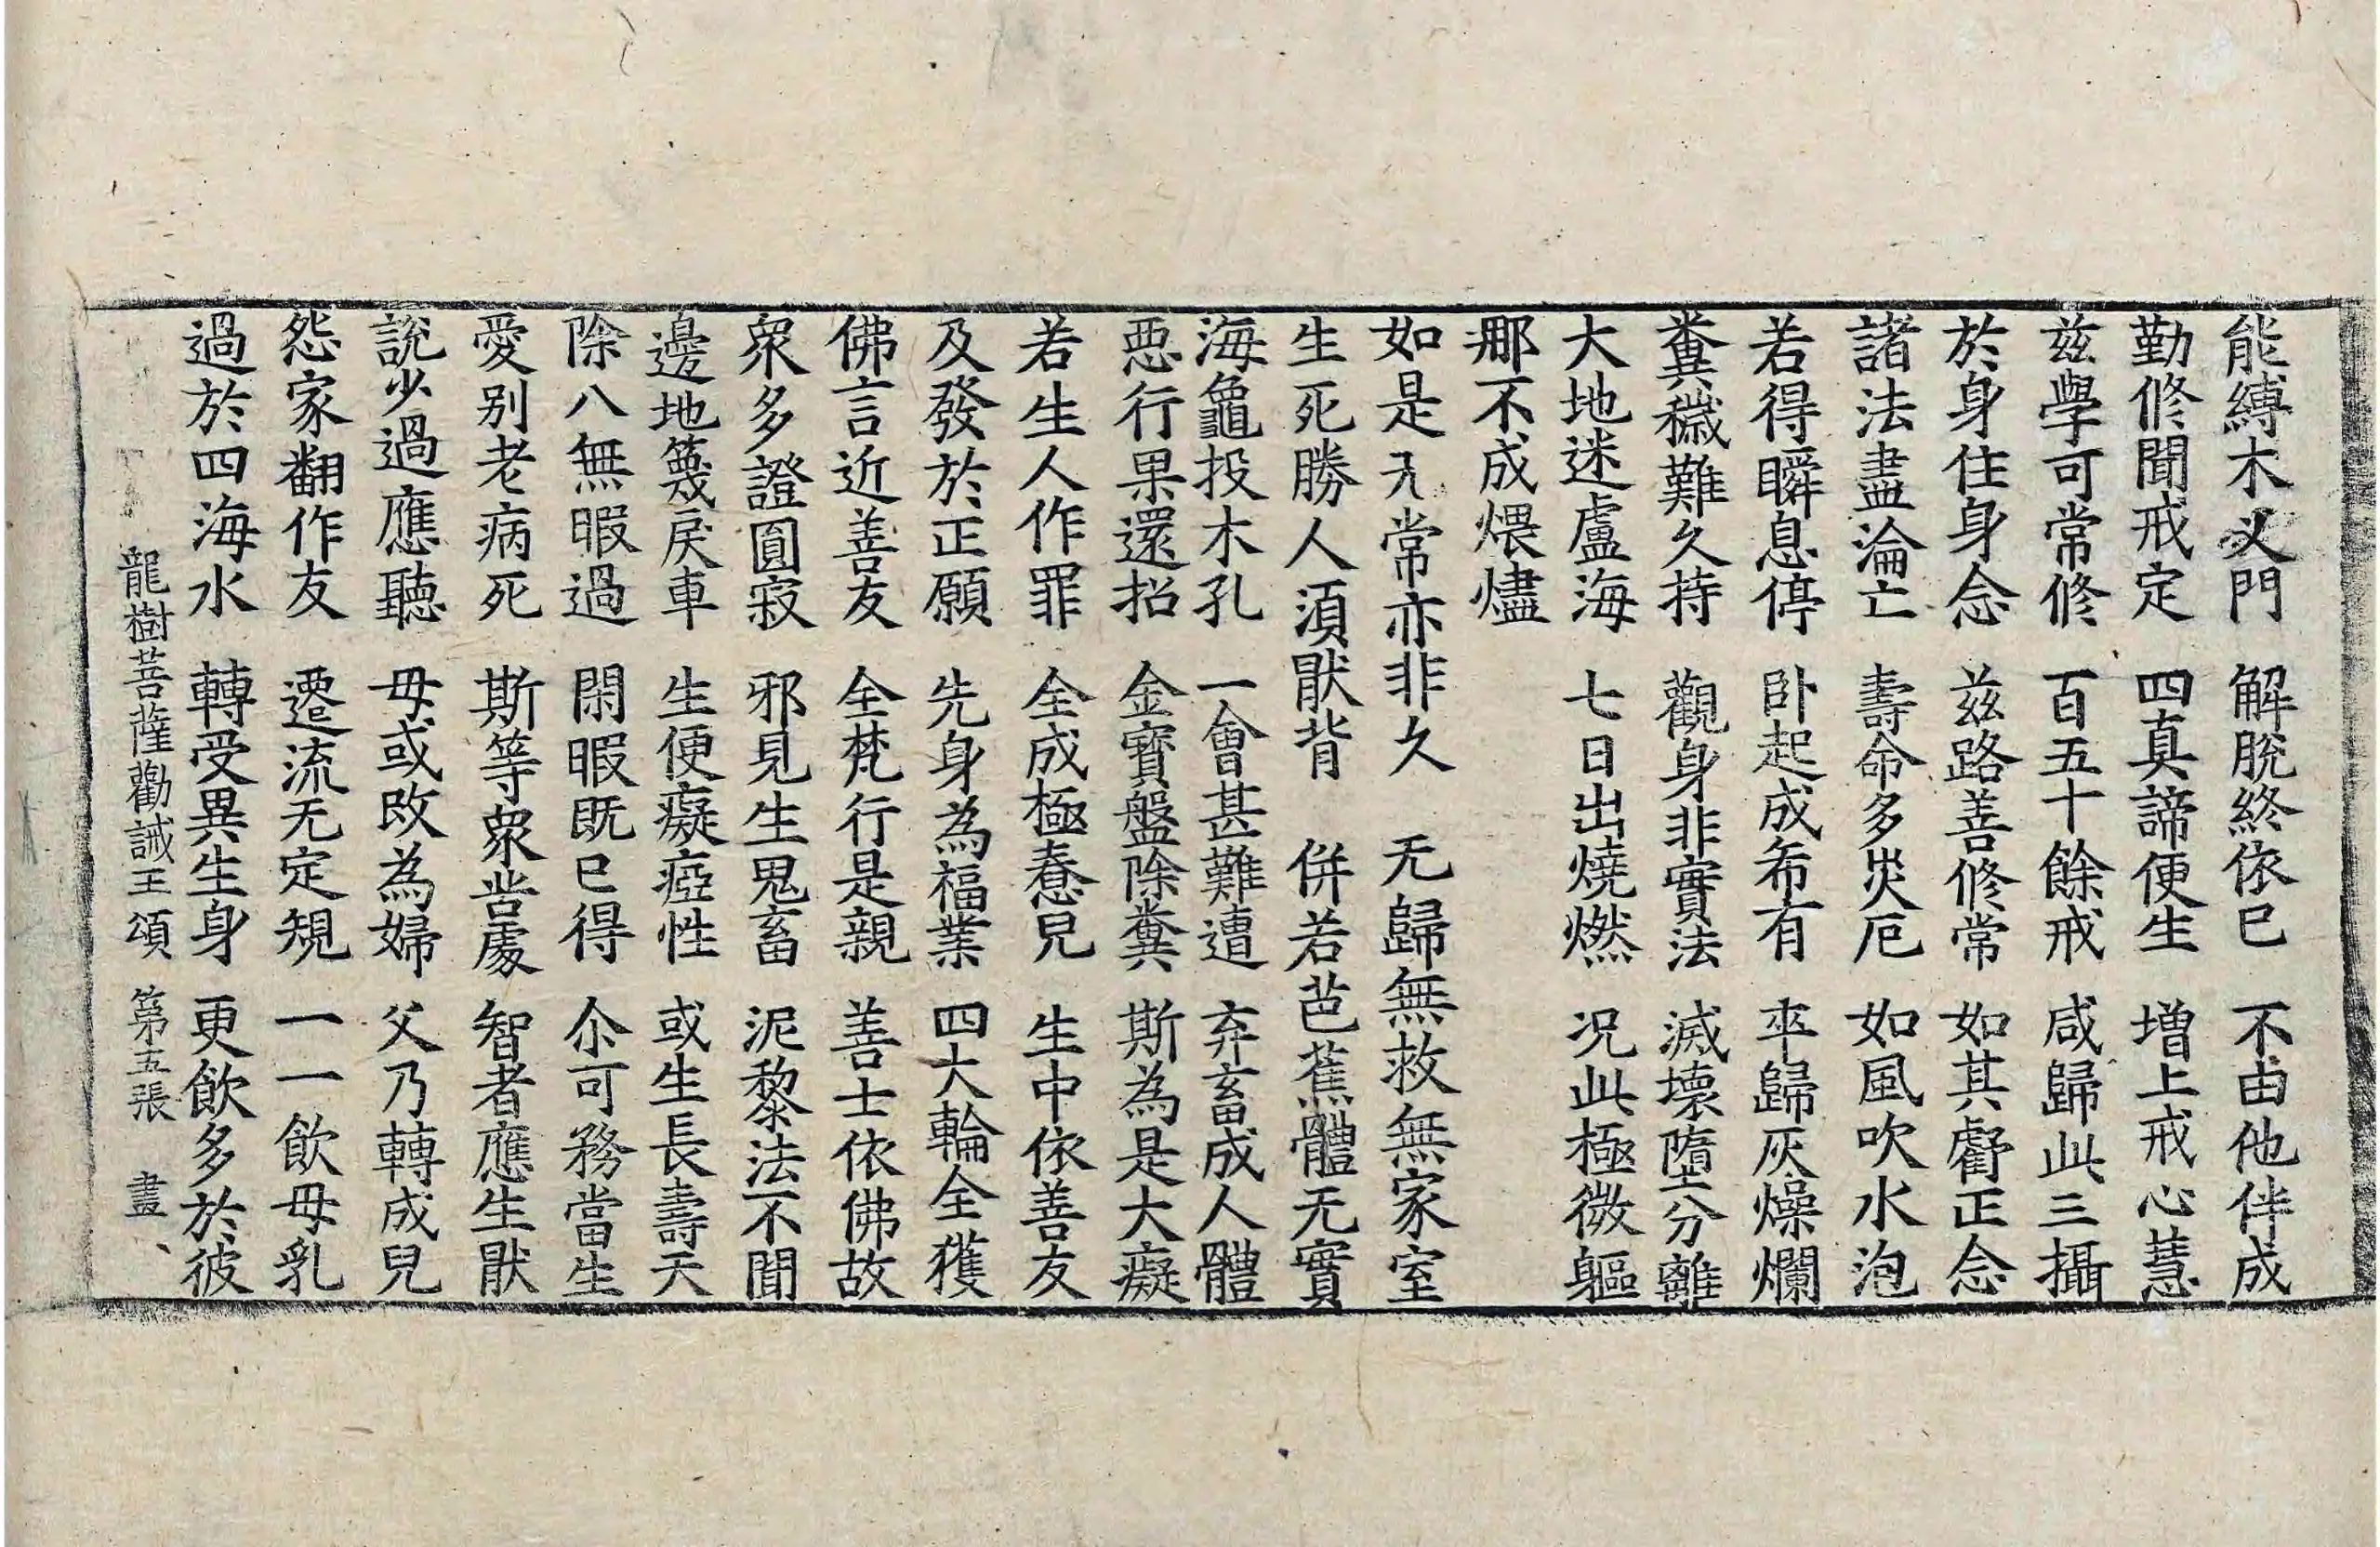 能縛木叉門　解脫終依已　不由他伴成
勤修聞戒定　四真諦便生　增上戒心慧
茲學可常修　百五十餘戒　咸歸此三攝
於身住身念　茲路善修常　如其虧正念
諸法盡淪亡　壽命多災厄　如風吹水泡
若得瞬息停　卧起成希有　卒歸灰燥爛
糞穢難久持　觀身非實法　滅壞墮分離
大地迷盧海　七日出燒燃　況此極微軀
那不成煨燼
如是无常亦非久　无歸無救無家室
生死勝人須猒背　併若芭蕉體无實
海龜投木孔　一會甚難遭　弃畜成人體
惡行果還招　金寶盤除糞　斯為是大癡
若生人作罪　全成極惷兒　生中依善友
及發於正願　先身為福業　四大輪全獲
佛言近善友　全梵行是親　善士依佛故
衆多證圓寂　邪見生鬼畜　泥黎法不聞
邊地篾戾車　生便癡瘂性　或生長壽天
除八無暇過　閑暇既已得　尒可務當生
愛別老病死　斯等衆苦處　智者應生猒
說少過應聽　母或改為婦　父乃轉成兒
怨家翻作友　遷流无定規　一一飲母乳
過於四海水　轉受異生身　更飲多於彼
龍樹菩薩勸誡王頌　第五張　盡